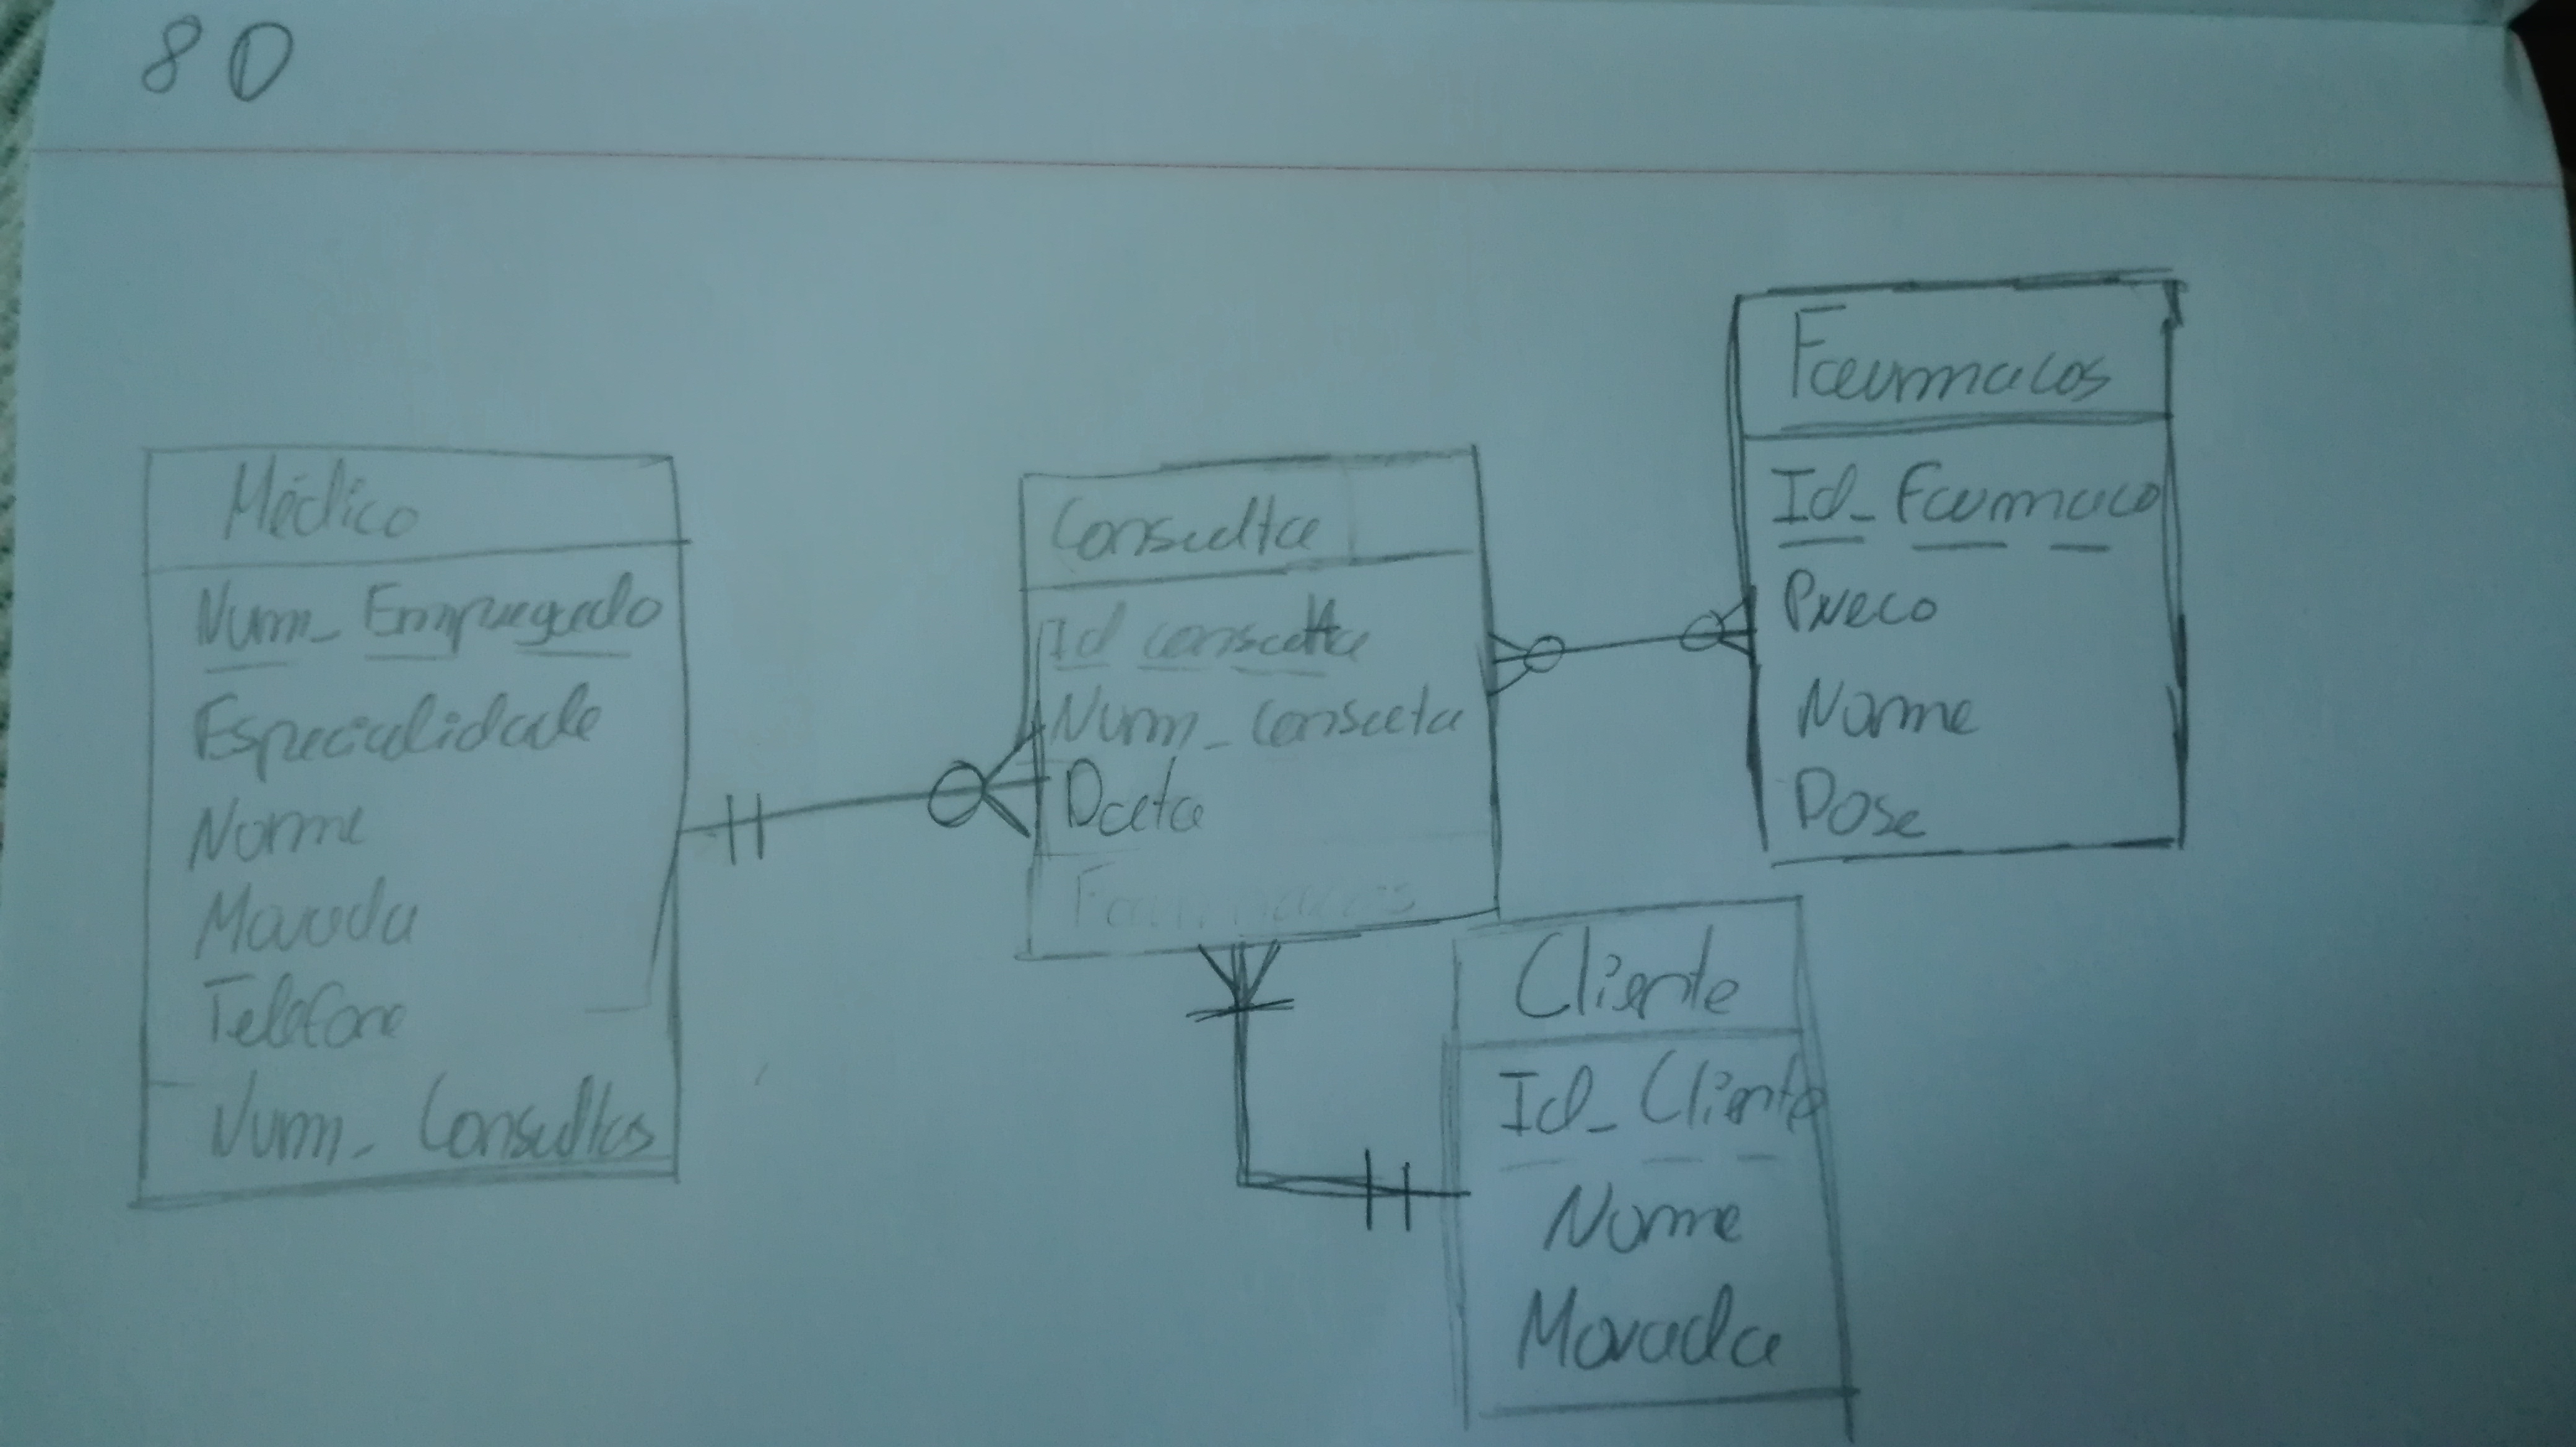 80
Médico
Num_Empregado
Especialidade
Nome
Morada
Telefone
Num_Consultas
Consulta
Id consulta
Num_Consulta
Data
Farmacos
Id_Farmaco
Preco
Nome
Dose
Cliente
Id_Cliente
Nome
Morada